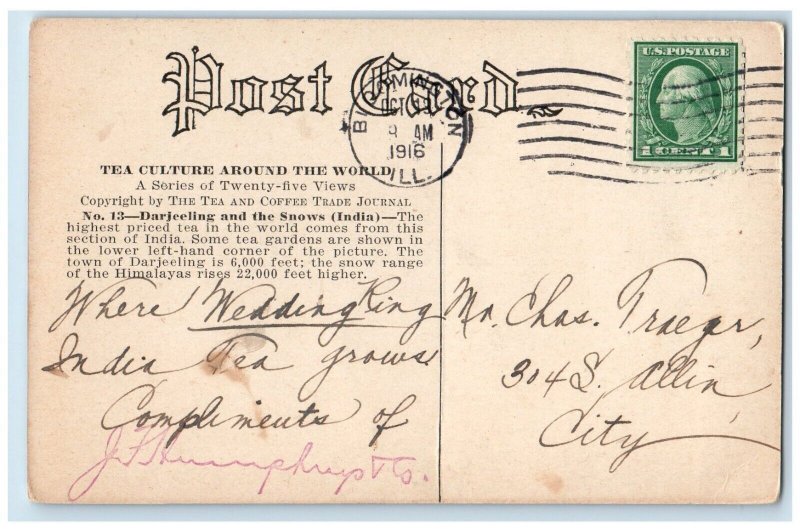 Post Card
BLOOMINGTON
OCT 13
8 AM
1916
ILL.
U.S. POSTAGE
1 CENT 1
TEA CULTURE AROUND THE WORLD
A Series of Twenty-five Views
Copyright by THE TEA AND COFFEE TRADE JOURNAL
No. 13—Darjeeling and the Snows (India)—The
highest priced tea in the world comes from this
section of India. Some tea gardens are shown in
the lower left-hand corner of the picture. The
town of Darjeeling is 6,000 feet; the snow range
of the Himalayas rises 22,000 feet higher.
Where Wedding Ring
India Tea grows.
Compliments of
J F Humphreys & Co.
Mr. Chas. Traeger,
304 S. Allin
City